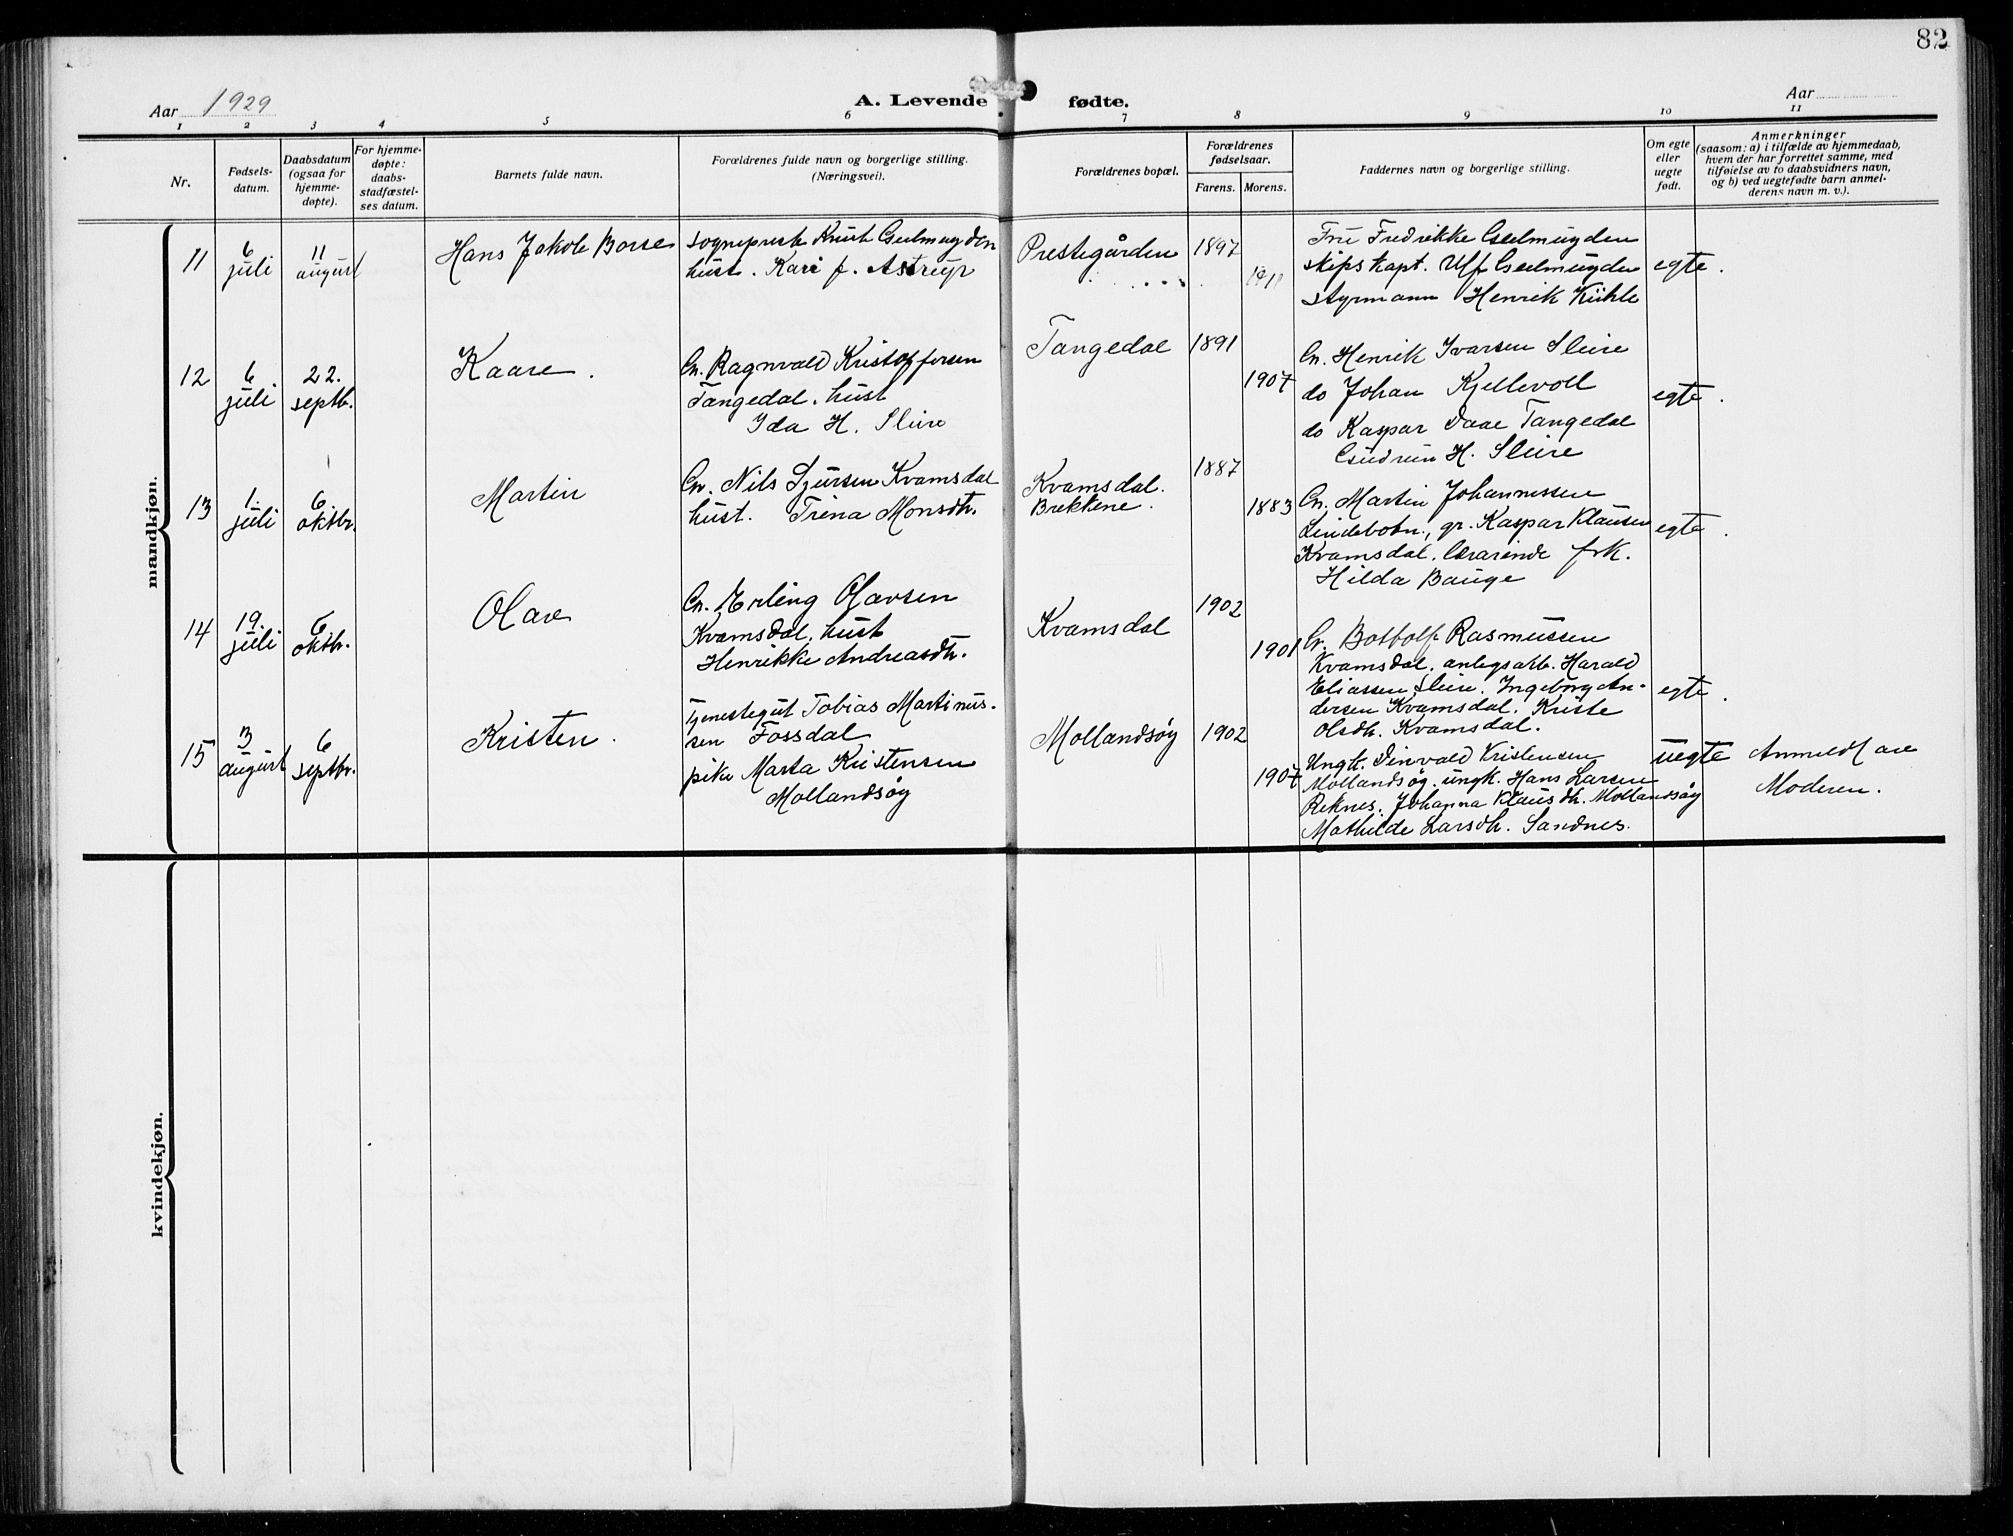 82
Aar 1929
A. Levende fødte.
Aar
1 2 3 4 5 6 7 8 9 10 11
Nr.
Fødsels-
datum.
Daabsdatum
(ogsaa for
hjemme-
døpte).
For hjemme-
døpte:
daabs-
stadfæstel-
ses datum.
Barnets fulde navn.
Forældrenes fulde navn og borgerlige stilling.
(Næringsvei).
Forældrenes bopæl.
Forældrenes
fødselsaar.
Farens. Morens.
Faddernes navn og borgerlige stilling.
Om egte
eller
uegte
født.
Anmerkninger
(saasom: a) i tilfælde av hjemmedaab,
hvem der har forrettet samme, med
tilføielse av to daabsvidners navn,
og b) ved uegtefødte barn anmel-
derens navn m. v.).
mandkjøn.
11
6
juli
11
august
Hans Jakob Borse
sogneprest Knut Geelmuyden
hust. Kari f. Astrup
Prestegården
1897
Fru Fredrikke Geelmuyden
skipskapt. Ulf Geelmuyden
styrmann Henrik Kühle
egte.
12
6
juli
22.
septb.
Kaare.
Gr. Ragnvald Kristoffersen
Tangedal, hust
Ida H. Sleire
Tangedal
1891
1907
Gr. Henrik Ivarsen Sleire
do Johan Kjellevoll
do Kaspar Daae Tangedal
Gudrun H. Sleire
egte.
13
1.
juli
6
oktbr.
Martin
Gr. Nils Sjursen Kvamsdal
hust. Trina Monsdtr.
Kvamsdal.
Brekkene.
1887
1883
Gr. Martin Johannessen
Lindebotn, gr. Kaspar Klausen
Kvamsdal, lærarinde frk.
Hilda Bauge
egte.
14
19.
juli
6
oktbr.
Olav
Gr. Erling Olavsen
Kvamsdal, hust
Henrikke Andreasdtr.
Kvamsdal
1902
1901
Gr. Botholf Rasmussen
Kvamsdal. anlegsarb. Harald
Eliassen Sleire. Ingeborg An-
dersen Kvamsdal. Kriste
Olsdtr. Kvamsdal.
egte.
15
3
august
6
septbr.
Kristen.
Tjenestegut Tobias Martinus-
sen Fossdal
pike Marta Kristensen
Mollandsøy
Mollandsøy
1902
1907
Ungk. Dinvald Kristensen
Mollandsøy. ungk. Hans Larsen
Reknes. Johanna Klausdtr. Mollandsøy
Mathilde Larsdtr. Sandnes.
uegte
Anmeldt av
Moderen.
kvindekjøn.